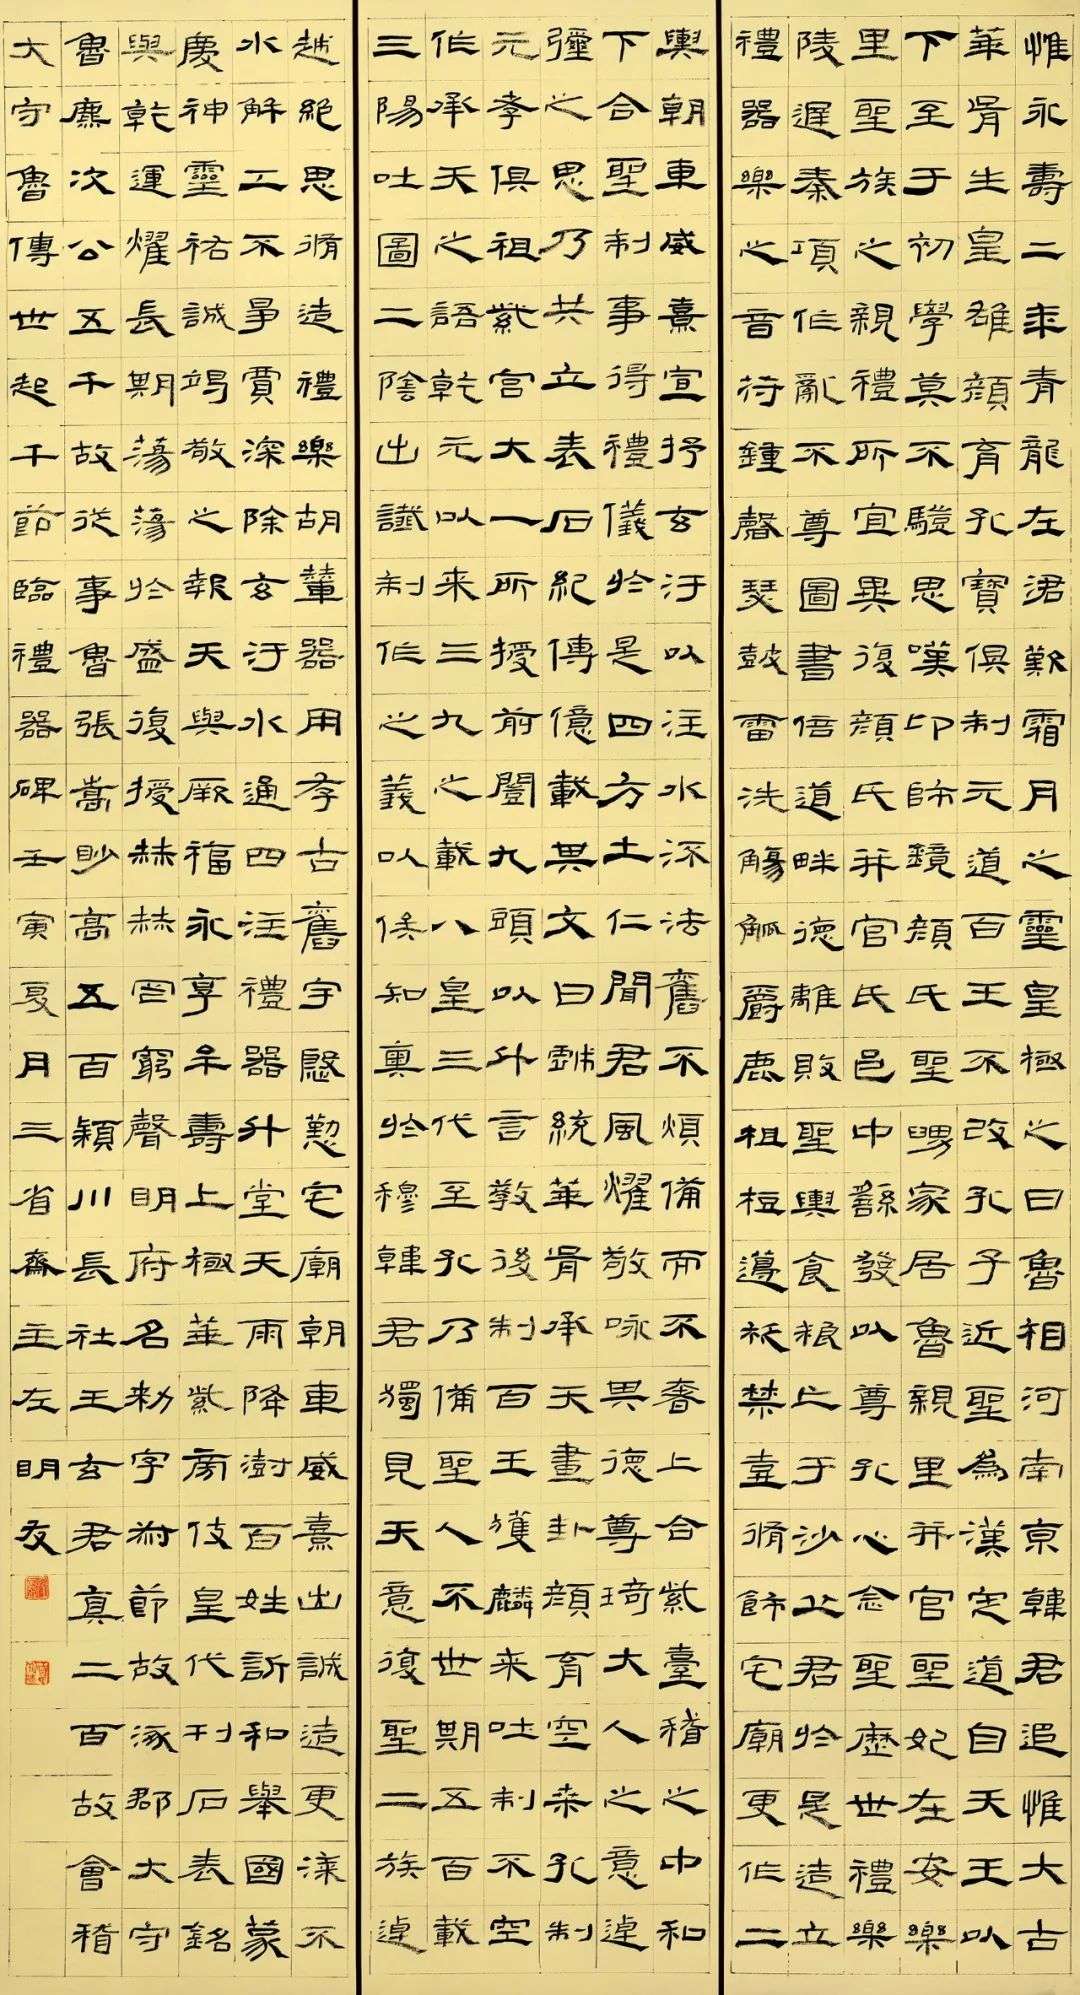 惟永壽二秊青龍左涒歎霜月之靈皇極之日魯相河南京韓君追惟大古
華胥生皇雄顏育孔寶俱制元道百王不改孔子近聖為漢定道自天王以
下至于初學莫不驥思嘆卬師鏡顏氏聖舅家居魯親里并官聖妃在安樂
里聖族之親禮所宜異復顏氏并官氏邑中繇發以尊孔心念聖歷世禮樂
陵遲秦項作亂不尊圖書倍道畔德離敗聖輿食粮亡于沙丘君於是造立
禮器樂之音苻鍾磬瑟鼓雷洗觴觚爵鹿柤梪籩柉禁壺脩飾宅廟更作二
輿朝車威熹宣抒玄汙以注水流法舊不煩備而不奢上合紫臺稽之中和
下合聖制事得禮儀於是四方土仁聞君風燿敬咏其德尊琦大人之意逴
彌之思乃共立表石紀傳億載其文曰戲統華胥承天畫卦顏育空桑孔制
元孝俱祖紫宮大一所授前闓九頭以升言教後制百王獲麟来吐制不空
作承天之語乾元以来三九之載八皇三代至孔乃備聖人不世期五百載
三陽吐圖二陰出讖制作之義以俟知奧於穆韓君獨見天意復聖二族逴
越絕思脩造禮樂胡輦器用存古舊宇慇懃宅廟朝車威熹出誠造更漆不
水解工不爭賈深除玄汙水通四注禮器升堂天雨降澍百姓訢和舉國蒙
慶神靈祐誠竭敬之報天與厥福永享牟壽上極華紫旁伎皇代刊石表銘
與乾運燿長期蕩蕩於盛復授赫赫罔窮聲明府名勑字叔節故涿郡大守
魯麃次公五千故從事魯張嵩眇高五百穎川長社王玄君真二百故會稽
大守魯傳世起千節臨禮器碑壬寅夏月三省齋主左明友